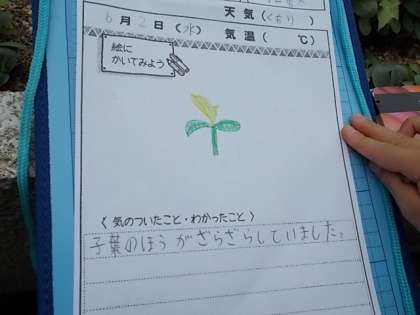 天気（くもり）
6月2日（水） 気温（ ℃）
絵に
かいてみよう
〈 気のついたこと・わかったこと 〉
子葉のほうがざらざらしていました。